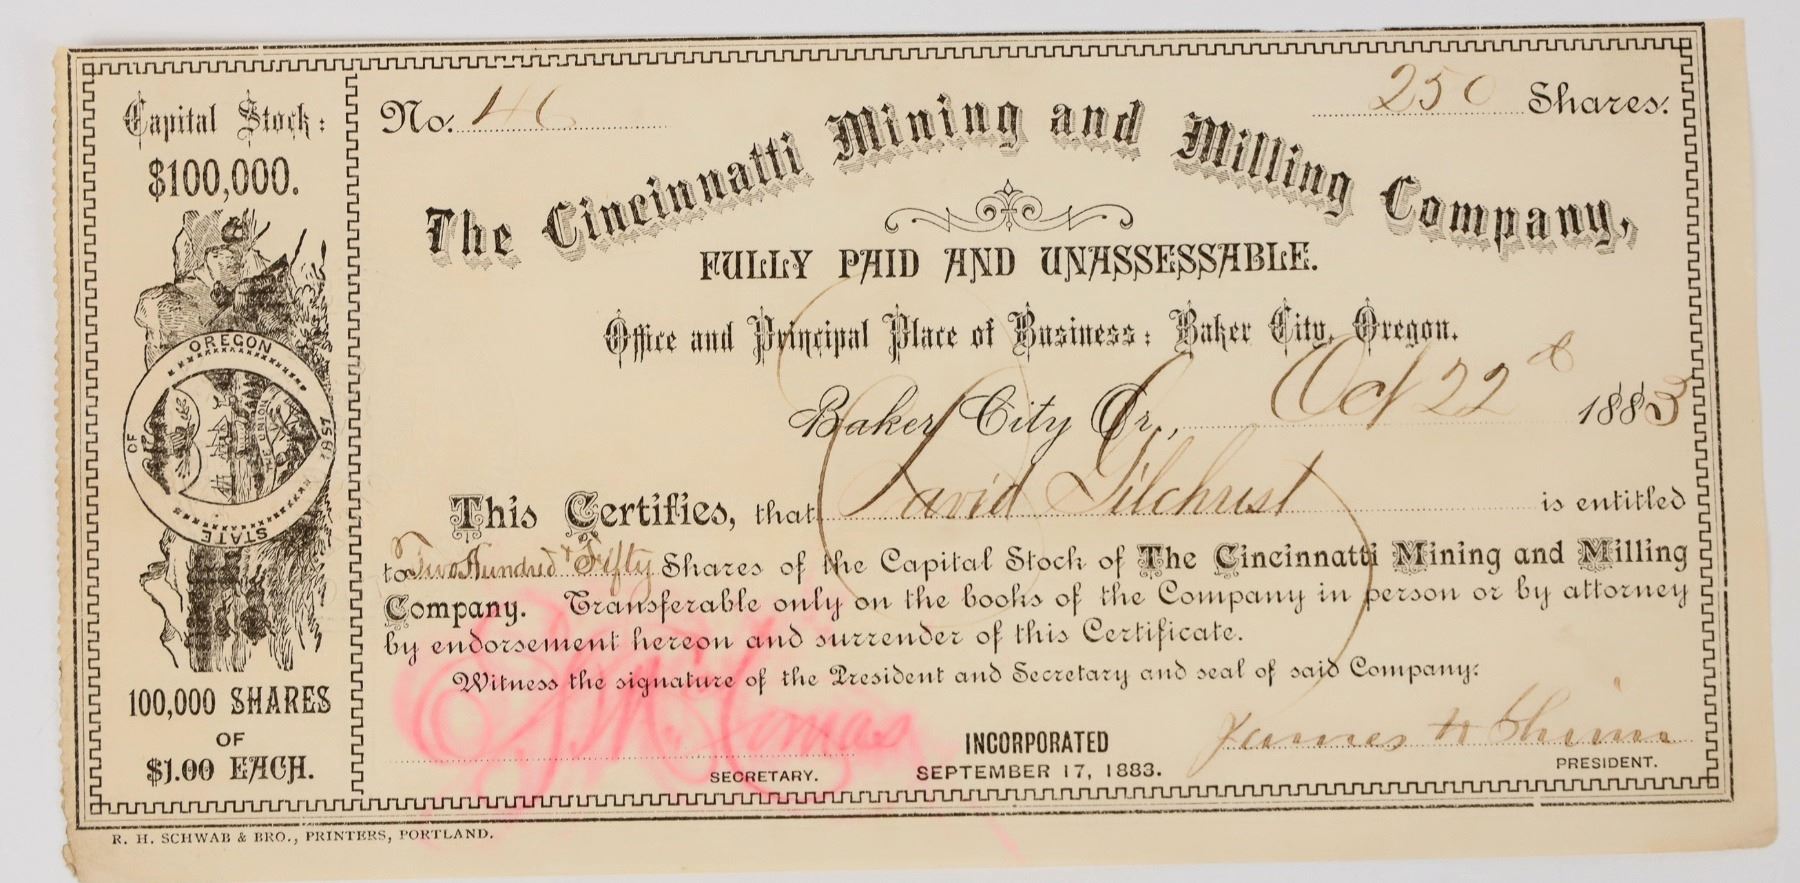 Capital Stock:
$100,000.
STATE OF OREGON
1857
THE UNION
100,000 SHARES
OF
$1.00 EACH.
No. 46
250 Shares.
The Cincinnatti Mining and Milling Company,
FULLY PAID AND UNASSESSABLE.
Office and Principal Place of Business: Baker City, Oregon.
Baker City Or., Oct 22d 1883
This Certifies, that David Gilchrist is entitled
to Two Hundred & Fifty Shares of the Capital Stock of The Cincinnatti Mining and Milling
Company. Transferable only on the books of the Company in person or by attorney
by endorsement hereon and surrender of this Certificate.
Witness the signature of the President and Secretary and seal of said Company:
James
SECRETARY.
INCORPORATED
SEPTEMBER 17, 1883.
PRESIDENT.
R. H. SCHWAB & BRO., PRINTERS, PORTLAND.